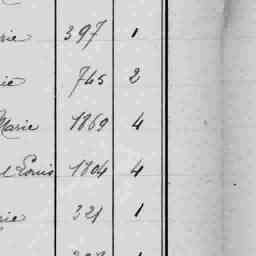 rie 397 1
ie 745 2
Marie 1869 4
l Louis 1804 4
rie 321 1